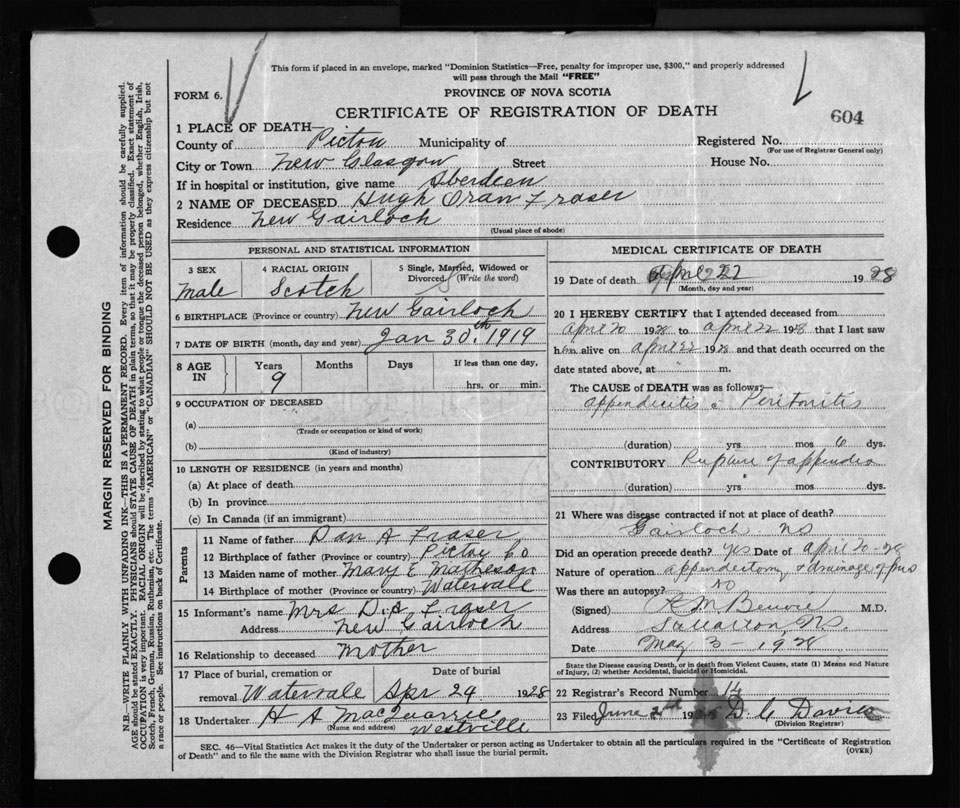 This form if placed in an envelope, marked "Dominion Statistics—Free, penalty for improper use, $300," and properly addressed
will pass through the Mail "FREE"
FORM 6.
PROVINCE OF NOVA SCOTIA
CERTIFICATE OF REGISTRATION OF DEATH
604
1 PLACE OF DEATH—
County of Pictou Municipality of
Registered No.
(For use of Registrar General only)
City or Town New Glasgow Street House No.
If in hospital or institution, give name Aberdeen
2 NAME OF DECEASED Hugh Oran Fraser
Residence New Gairloch
(Usual place of abode)
PERSONAL AND STATISTICAL INFORMATION
3 SEX 4 RACIAL ORIGIN 5 Single, Married, Widowed or
Divorced (Write the word)
Male Scotch S
6 BIRTHPLACE (Province or country) New Gairloch
7 DATE OF BIRTH (month, day and year) Jan 30th 1919
8 AGE IN Years Months Days If less than one day,
9 hrs. or min.
9 OCCUPATION OF DECEASED
(a)
(Trade or occupation or kind of work)
(b)
(Kind of industry)
10 LENGTH OF RESIDENCE (in years and months)
(a) At place of death
(b) In province
(c) In Canada (if an immigrant)
Parents
11 Name of father Dan A Fraser
12 Birthplace of father (Province or country) Pictou Co
13 Maiden name of mother Mary E Matheson
14 Birthplace of mother (Province or country) Watervale
15 Informant's name Mrs D. A. Fraser
Address New Gairloch
16 Relationship to deceased Mother
17 Place of burial, cremation or Date of burial
removal Watervale Apr 24 1928
18 Undertaker H A MacQuarrie
(Name and address) Westville
MEDICAL CERTIFICATE OF DEATH
19 Date of death April 22 1928
(Month, day and year)
20 I HEREBY CERTIFY that I attended deceased from
April 20 1928 to April 22 1928 that I last saw
him alive on April 22 1928 and that death occurred on the
date stated above, at m.
The CAUSE of DEATH was as follows:—
Appendicitis c Peritonitis
(duration) yrs mos 6 dys.
CONTRIBUTORY Rupture of appendix
(duration) yrs mos dys.
21 Where was disease contracted if not at place of death?
Gairloch NS
Did an operation precede death? yes Date of April 20-28
Nature of operation appendectomy & drainage of pus
Was there an autopsy? No
(Signed) R M Benvie M.D.
Address Stellarton, NS.
Date May 3 - 1928
State the Disease causing Death, or in death from Violent Causes, state (1) Means and Nature
of Injury, (2) whether Accidental, Suicidal or Homicidal.
22 Registrar's Record Number 14
23 Filed June 2nd 19 D C Davis
(Division Registrar)
SEC. 46—Vital Statistics Act makes it the duty of the Undertaker or person acting as Undertaker to obtain all the particulars required in the "Certificate of Registration
of Death" and to file the same with the Division Registrar who shall issue the burial permit.
(OVER)
MARGIN RESERVED FOR BINDING
N.B.—WRITE PLAINLY WITH UNFADING INK—THIS IS A PERMANENT RECORD. Every item of information should be carefully supplied.
AGE should be stated EXACTLY. PHYSICIANS should STATE CAUSE OF DEATH in plain terms, so that it may be properly classified. Exact statement of
OCCUPATION is very important. RACIAL ORIGIN will be described by stating to what people or tongue the deceased person belonged, whether English, Irish,
Scotch, French, German, Russian, Ruthenian, etc. The terms "AMERICAN" or "CANADIAN" SHOULD NOT BE USED as they express citizenship but not
a race or people. See instructions on back of Certificate.